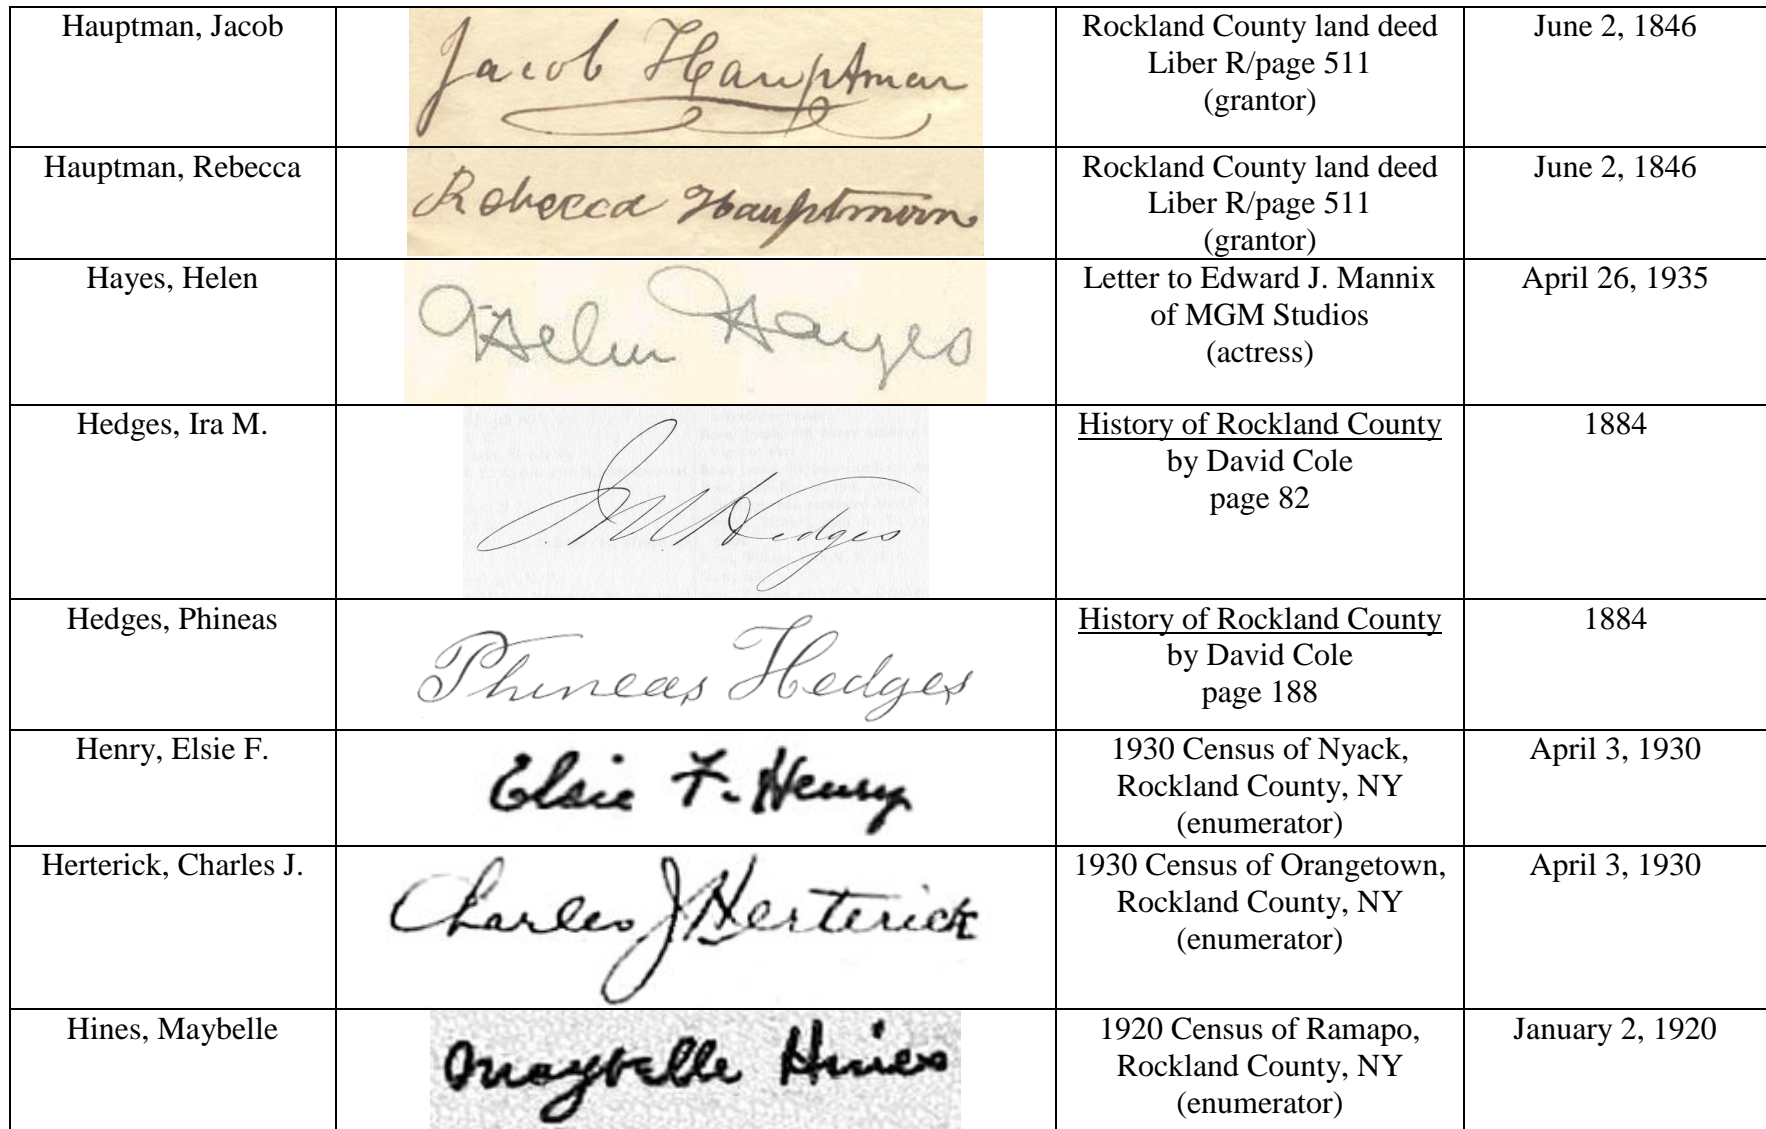 Hauptman, Jacob
Jacob Hauptman
Rockland County land deed
Liber R/page 511
(grantor)
June 2, 1846
Hauptman, Rebecca
Rebecca Hauptman
Rockland County land deed
Liber R/page 511
(grantor)
June 2, 1846
Hayes, Helen
Helen Hayes
Letter to Edward J. Mannix
of MGM Studios
(actress)
April 26, 1935
Hedges, Ira M.
I M Hedges
History of Rockland County
by David Cole
page 82
1884
Hedges, Phineas
Phineas Hedges
History of Rockland County
by David Cole
page 188
1884
Henry, Elsie F.
Elsie F. Henry
1930 Census of Nyack,
Rockland County, NY
(enumerator)
April 3, 1930
Herterick, Charles J.
Charles J Herterick
1930 Census of Orangetown,
Rockland County, NY
(enumerator)
April 3, 1930
Hines, Maybelle
Maybelle Hines
1920 Census of Ramapo,
Rockland County, NY
(enumerator)
January 2, 1920